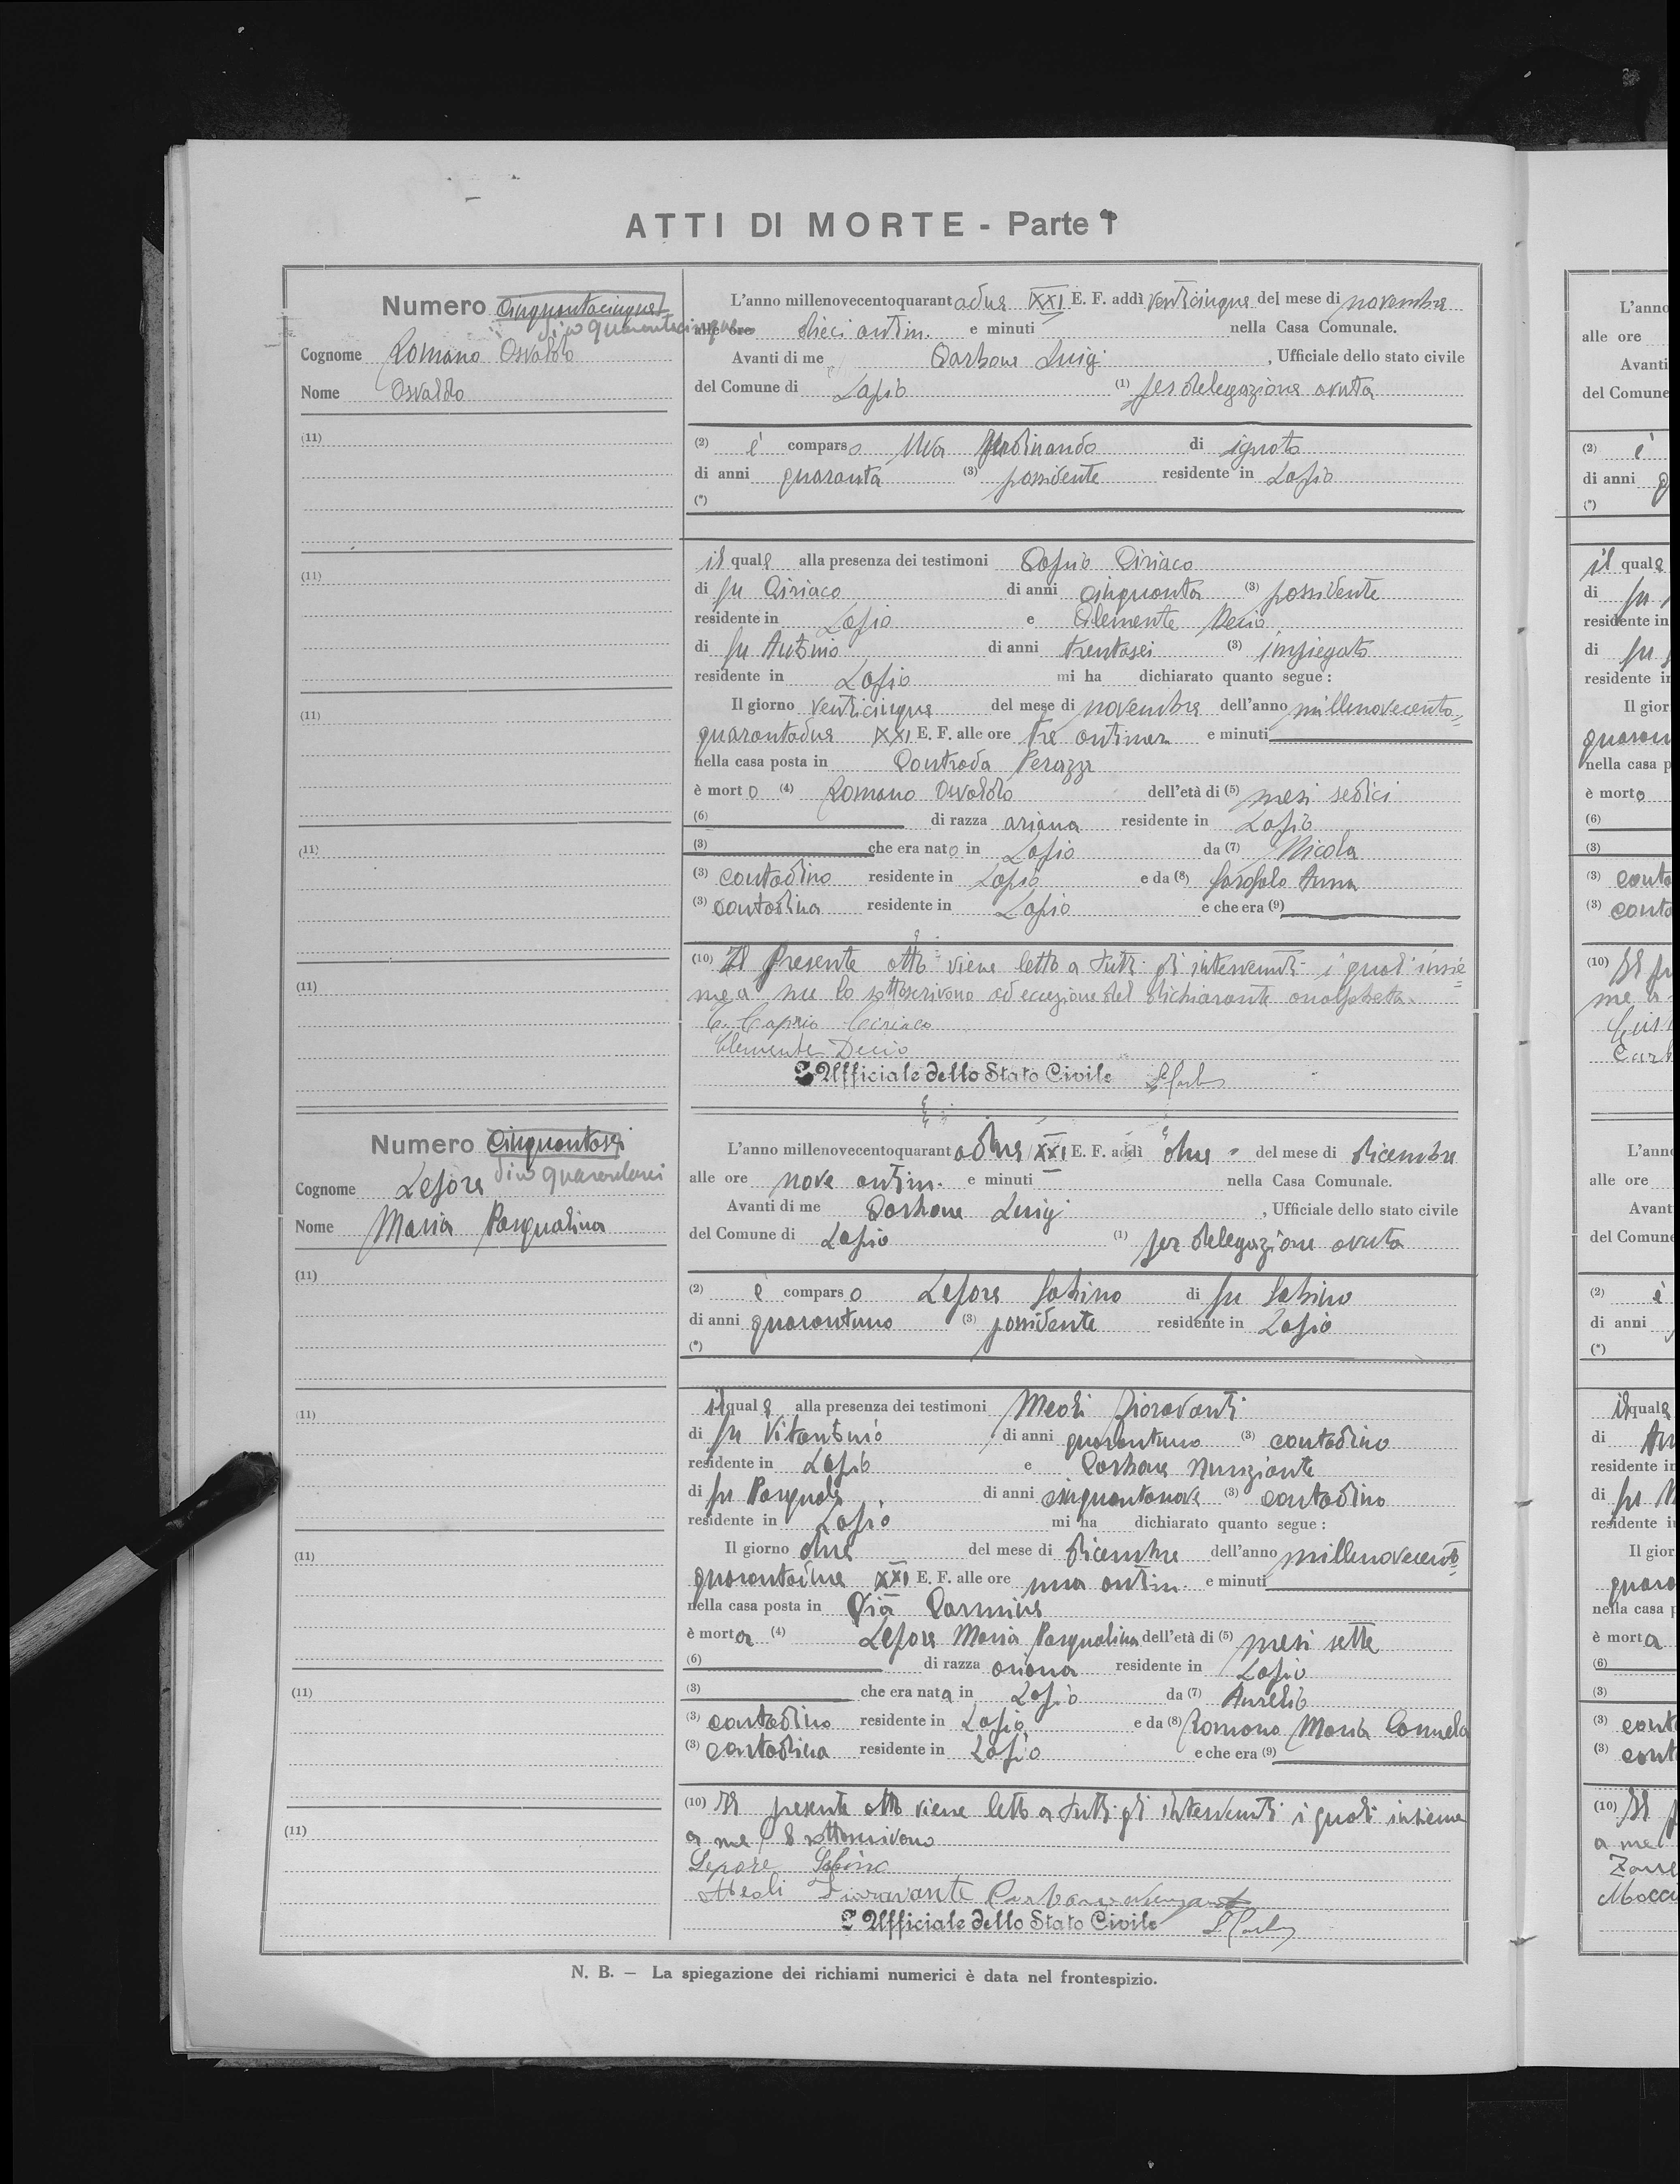 ATTI DI MORTE - Parte I
Numero cinquantacinque
dico quarantacinque
Cognome Romano Osvaldo
Nome Osvaldo
(11)
(11)
(11)
(11)
(11)
L'anno millenovecentoquarantadue XXI E. F. addì venticinque del mese di novembre
alle ore dieci antim. e minuti nella Casa Comunale.
Avanti di me Carbone Luigi, Ufficiale dello stato civile
del Comune di Lapio (1) per delegazione avuta
(2) è comparso Uva Ferdinando di ignoto
di anni quaranta (3) possidente residente in Lapio
(*)
il quale alla presenza dei testimoni Caprio Ciriaco
di fu Ciriaco di anni cinquanta (3) possidente
residente in Lapio e Clemente Decio
di fu Antonio di anni trentasei (3) impiegato
residente in Lapio mi ha dichiarato quanto segue:
Il giorno venticinque del mese di novembre dell'anno millenovecento=
quarantadue XXI E. F. alle ore tre antimer. e minuti
nella casa posta in Contrada Perazze
è morto (4) Romano Osvaldo dell'età di (5) mesi sedici
(6) di razza ariana residente in Lapio
(3) che era nato in Lapio da (7) Nicola
(3) contadino residente in Lapio e da (8) Garofalo Anna
(3) contadina residente in Lapio e che era (9)
(10) Il Presente atto viene letto a tutti gli intervenuti i quali insie=
me a me lo sottoscrivono ad eccezione del dichiarante analfabeta.
C. Caprio Ciriaco
Clemente Decio
L'Ufficiale dello Stato Civile
Numero cinquantasei
dico quarantasei
Cognome Lepore
Nome Maria Pasqualina
(11)
(11)
(11)
(11)
(11)
L'anno millenovecentoquarantadue XXI E. F. addì due del mese di dicembre
alle ore nove antim. e minuti nella Casa Comunale.
Avanti di me Carbone Luigi, Ufficiale dello stato civile
del Comune di Lapio (1) per delegazione avuta
(2) è comparso Lepore Sabino di fu Sabino
di anni quarantuno (3) possidente residente in Lapio
(*)
il quale alla presenza dei testimoni Meoli Fioravanti
di fu Vitantonio di anni quarantuno (3) contadino
residente in Lapio e Carbone Nunziante
di fu Pasquale di anni cinquantanove (3) contadino
residente in Lapio mi ha dichiarato quanto segue:
Il giorno due del mese di dicembre dell'anno millenovecento=
quarantadue XXI E. F. alle ore una antim. e minuti
nella casa posta in Via Carmine
è morta (4) Lepore Maria Pasqualina dell'età di (5) mesi sette
(6) di razza ariana residente in Lapio
(3) che era nata in Lapio da (7) Aurelio
(3) contadino residente in Lapio e da (8) Romano Maria Carmela
(3) contadina residente in Lapio e che era (9)
(10) Il presente atto viene letto a tutti gli intervenuti i quali insieme
a me lo sottoscrivono
Lepore Sabino
Meoli Fioravante Carbone Nunziante
L'Ufficiale dello Stato Civile
N. B. — La spiegazione dei richiami numerici è data nel frontespizio.
L'anno
alle ore
Avanti
del Comune
(2) è
di anni
(*)
il quale
di fu
residente in
di fu
residente in
Il gior
quaran
nella casa p
è morto
(6)
(3)
(3) conta
(3) conta
(10)
me a
L'anno
alle ore
Avant
del Comune
(2) è
di anni
(*)
il quale
di
residente in
di fu
residente in
Il gior
quara
nella casa p
è morta
(6)
(3)
(3) cont
(3) cont
(10)
a me